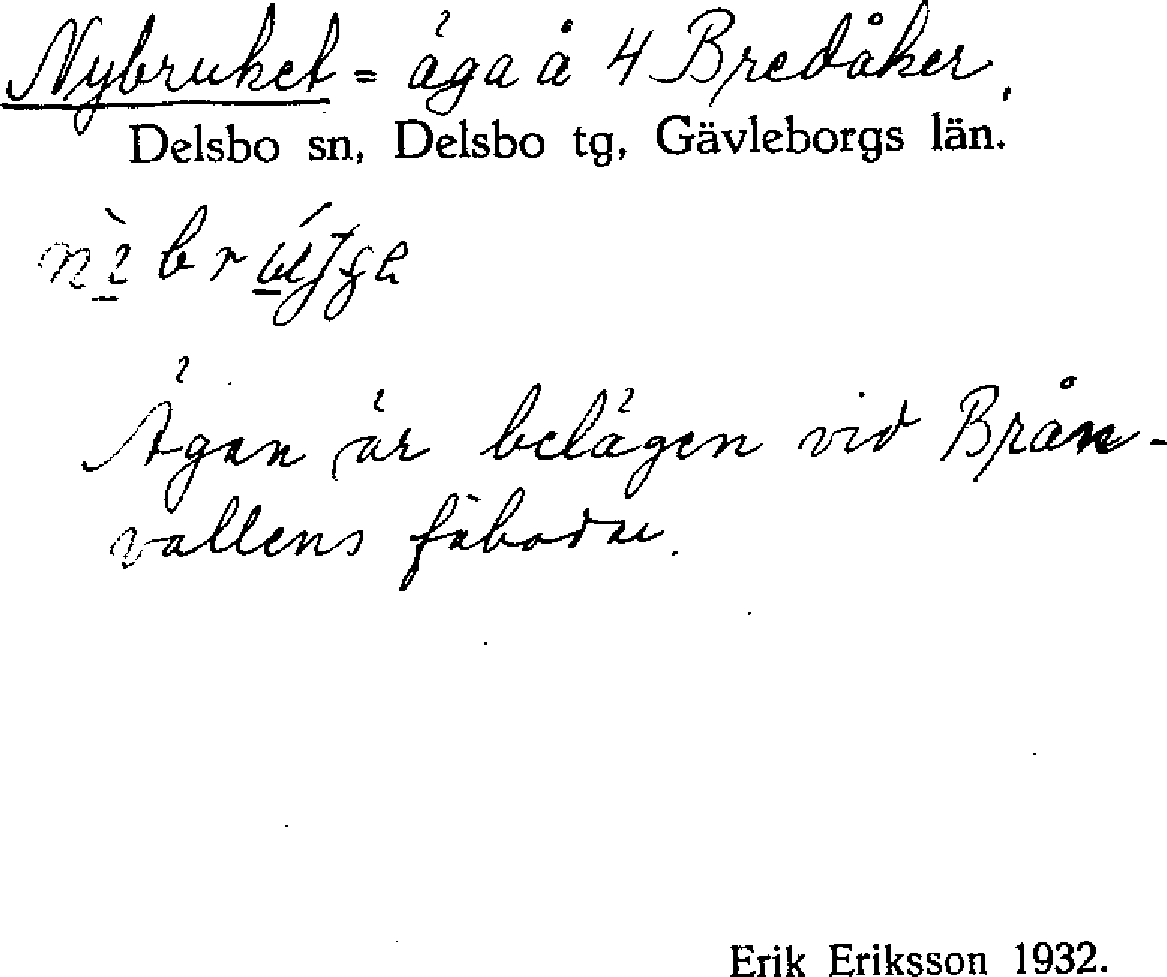 Nybruket = äga å 4 Bredåker.
Delsbo sn, Delsbo tg, Gävleborgs län.
Ägan är belägen vid Brån-
vallens fäbodar.
Erik Eriksson 1932.